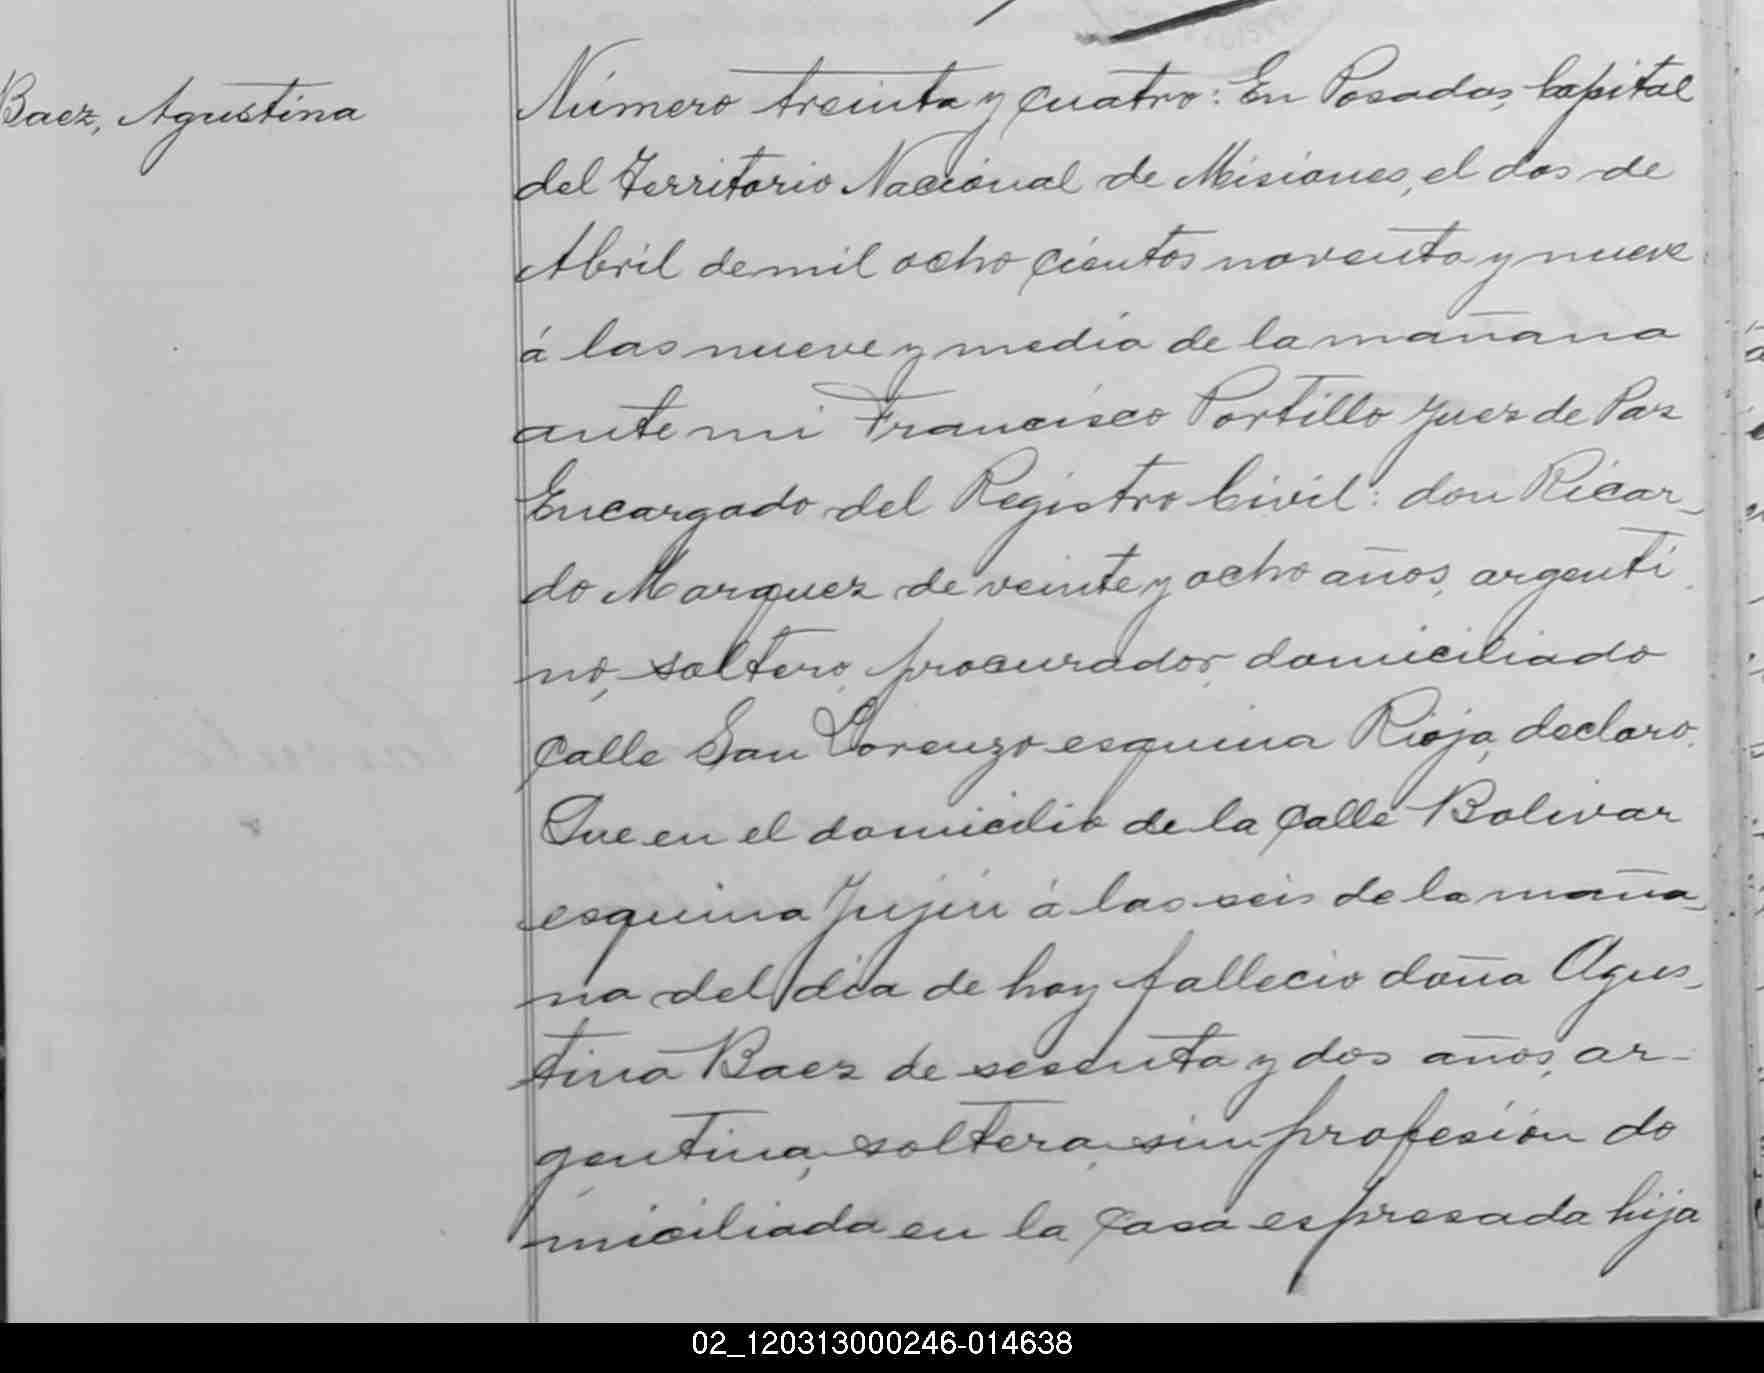 Baez, Agustina
Número treinta y cuatro: En Posadas, Capital
del Territorio Nacional de Misiones, el dos de
Abril de mil ocho cientos noventa y nueve
á las nueve y media de la mañana
ante mi Francisco Portillo Juez de Paz
Encargado del Registro Civil: don Ricar-
do Marquez de veinte y ocho años, argenti
no, soltero, procurador, domiciliado
calle San Lorenzo esquina Rioja, declaro.
Que en el domicilio de la calle Bolivar
esquina Jujuí á las seis de la maña-
na del dia de hoy fallecio doña Agus-
tina Baez de sesenta y dos años, ar-
gentina, soltera, sin profesión do
miciliada en la casa espresada hija
02_120313000246-014638